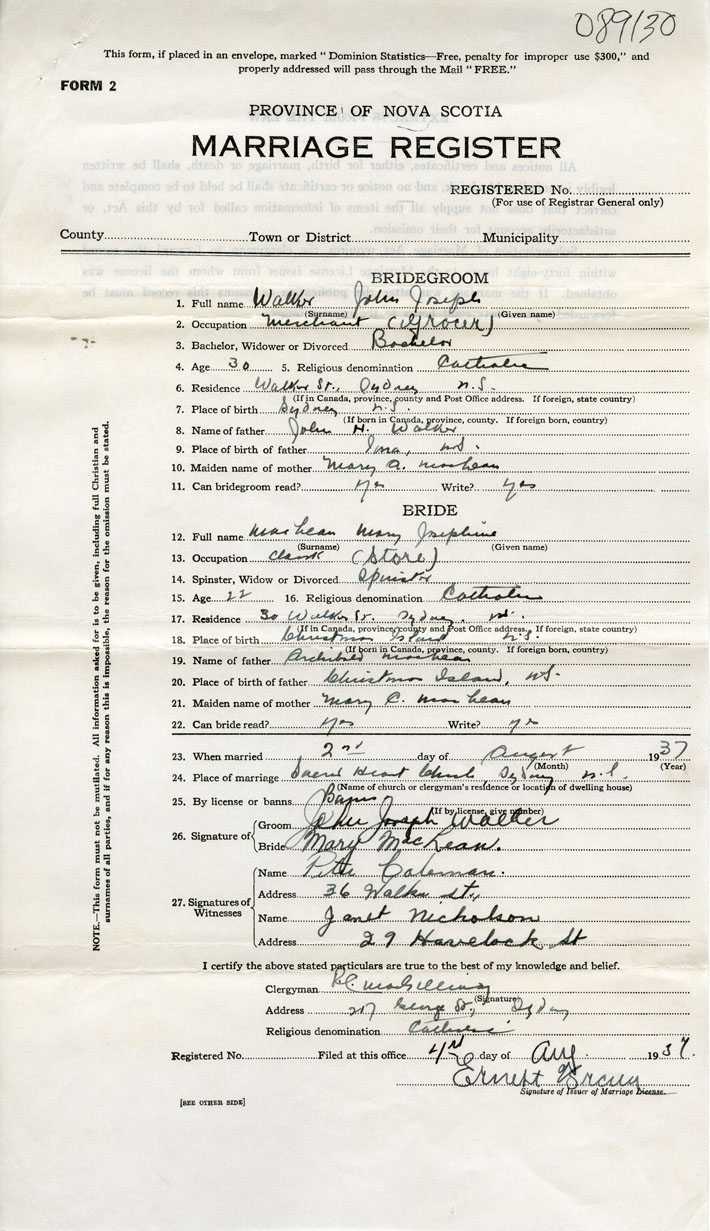 089130
This form, if placed in an envelope, marked " Dominion Statistics—Free, penalty for improper use $300," and
properly addressed will pass through the Mail " FREE."
FORM 2
PROVINCE OF NOVA SCOTIA
MARRIAGE REGISTER
REGISTERED No.
(For use of Registrar General only)
County Town or District Municipality
BRIDEGROOM
1. Full name Walker John Joseph
(Surname) (Given name)
2. Occupation Merchant (Grocer)
3. Bachelor, Widower or Divorced Bachelor
4. Age 30 5. Religious denomination Catholic
6. Residence Walker St., Sydney N.S.
(If in Canada, province, county and Post Office address. If foreign, state country)
7. Place of birth Sydney N.S.
(If born in Canada, province, county. If foreign born, country)
8. Name of father John H. Walker
9. Place of birth of father Iona, N.S.
10. Maiden name of mother Mary A. MacLean
11. Can bridegroom read? Yes Write? Yes
BRIDE
12. Full name MacLean Mary Josephine
(Surname) (Given name)
13. Occupation Clerk (Store)
14. Spinster, Widow or Divorced Spinster
15. Age 22 16. Religious denomination Catholic
17. Residence 30 Walker St. Sydney, N.S.
(If in Canada, province, county and Post Office address, If foreign, state country)
18. Place of birth Christmas Island N.S.
(If born in Canada, province, county. If foreign born, country)
19. Name of father Archibald MacLean
20. Place of birth of father Christmas Island, N.S.
21. Maiden name of mother Mary C. MacLean
22. Can bride read? Yes Write? Yes
23. When married 2nd day of August 1937
(Month) (Year)
24. Place of marriage Sacred Heart Church, Sydney N.S.
(Name of church or clergyman's residence or location of dwelling house)
25. By license or banns Banns
(If by license, give number)
26. Signature of Groom John Joseph Walker
Bride Mary MacLean.
27. Signatures of Witnesses
Name Peter Coleman.
Address 36 Walker St.,
Name Janet Nicholson
Address 29 Havelock St
I certify the above stated particulars are true to the best of my knowledge and belief.
Clergyman MacGillivray
(Signature)
Address George St., Sydney
Religious denomination Catholic
Registered No. Filed at this office 4 day of Aug. 1937.
Ernest
Signature of Issuer of Marriage License.
[SEE OTHER SIDE]
NOTE.—This form must not be mutilated. All information asked for is to be given, including full Christian and
surnames of all parties, and if for any reason this is impossible, the reason for the omission must be stated.